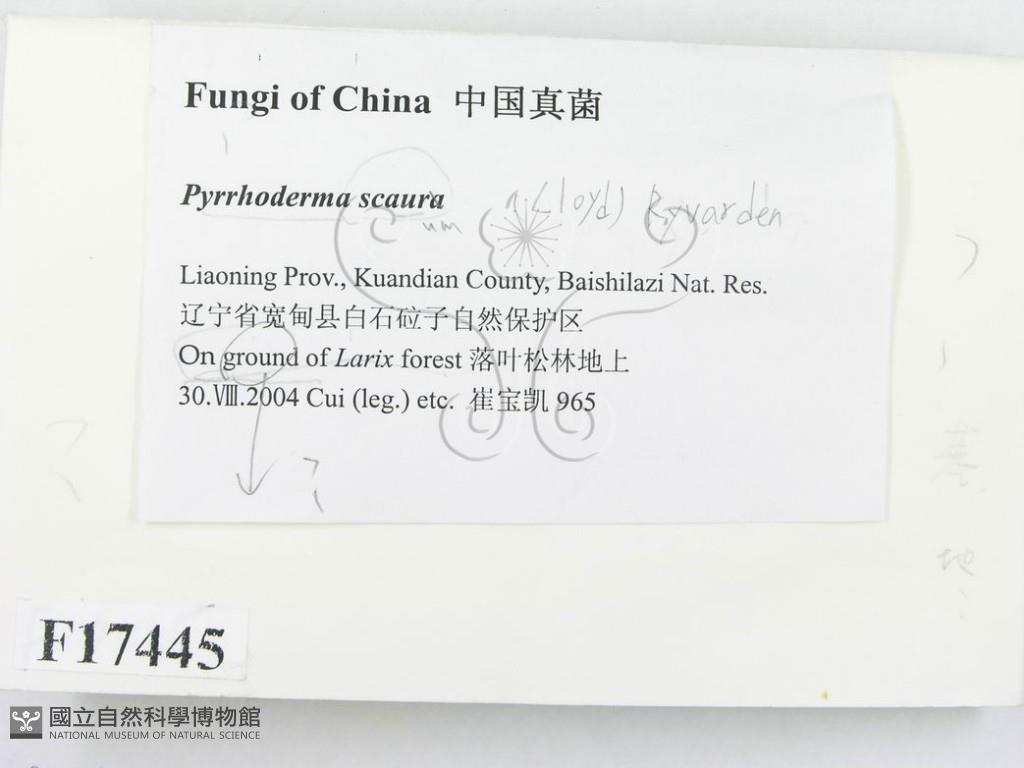 Fungi of China 中国真菌
Pyrrhoderma scaura
um (Lloyd) Ryvarden
Liaoning Prov., Kuandian County, Baishilazi Nat. Res.
辽宁省宽甸县白石砬子自然保护区
On ground of Larix forest 落叶松林地上
30.Ⅷ.2004 Cui (leg.) etc. 崔宝凯 965
?
F17445
國立自然科學博物館
NATIONAL MUSEUM OF NATURAL SCIENCE